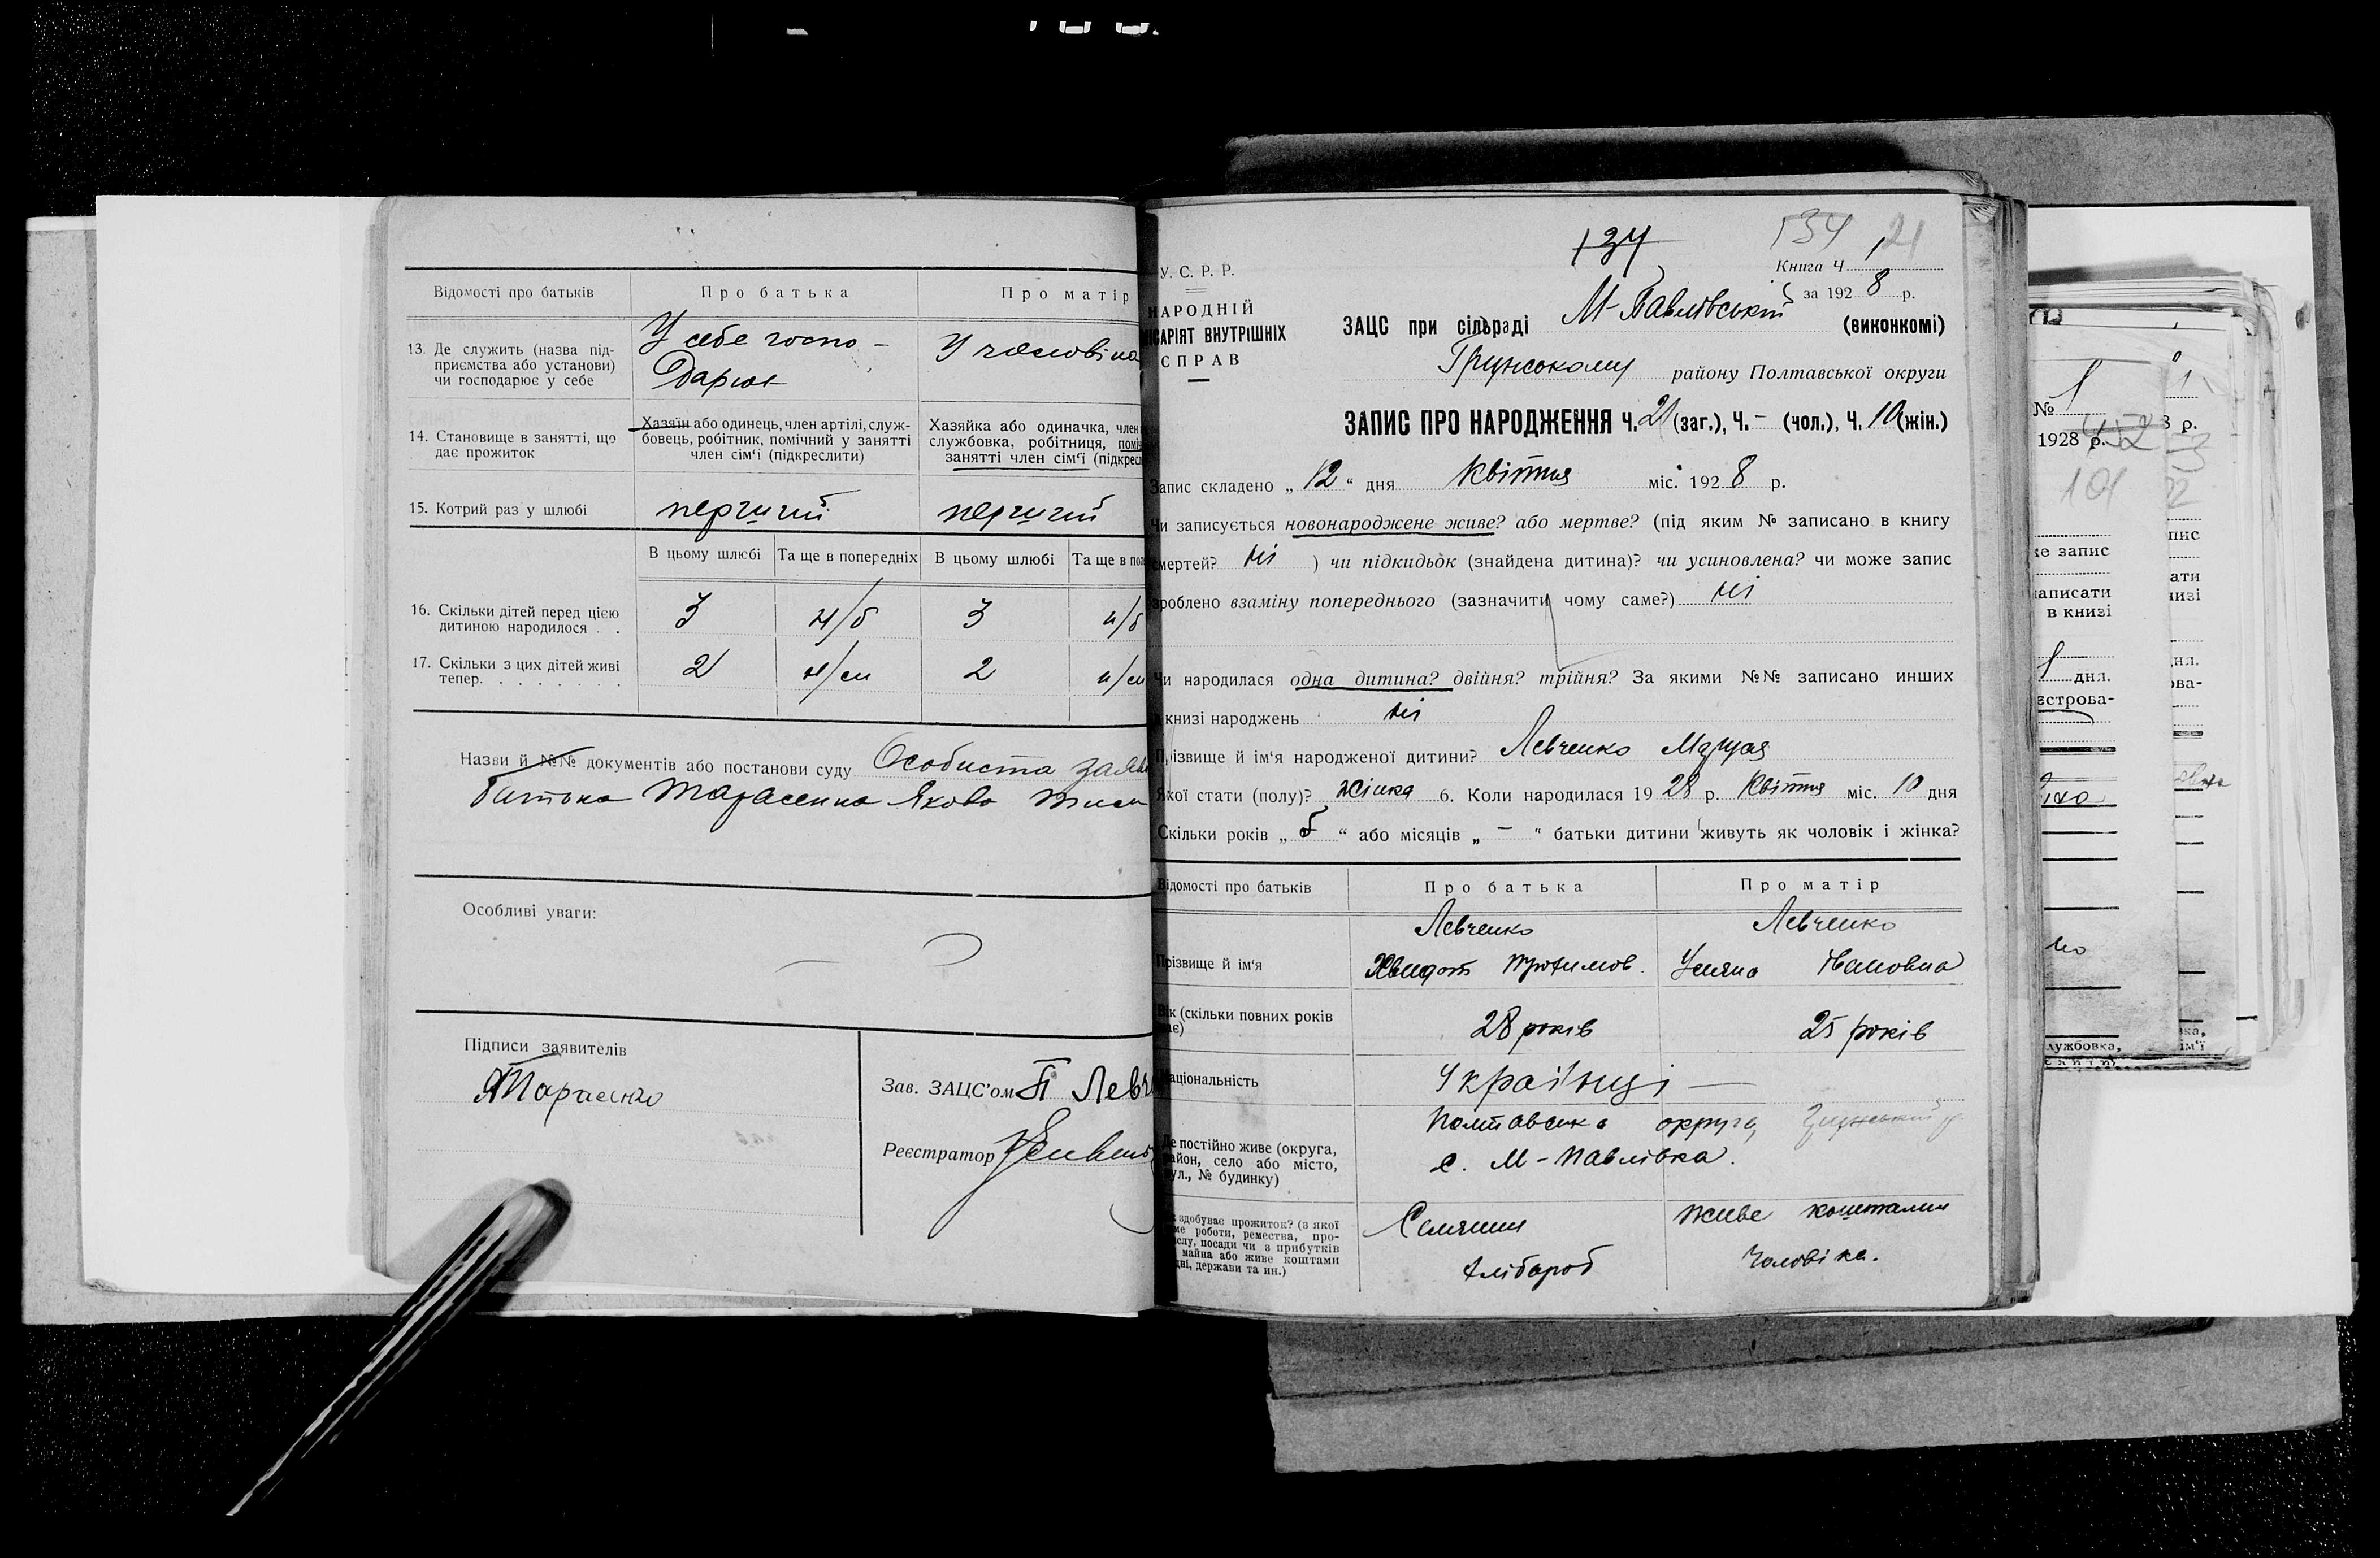 Відомості про батьків
Про батька
Про матір
13. Де служить (назва під-
приємства або установи)
чи господарює у себе
У себе госпо-
дарює
У чоловіка
14. Становище в занятті, що
дає прожиток
Хазяїн або одинець, член артілі, служ-
бовець, робітник, помічний у занятті
член сім'ї (підкреслити)
Хазяйка або одиначка, член
службовка, робітниця,
занятті член сім'ї
15. Котрий раз у шлюбі
перший
перший
В цьому шлюбі
Та ще в попередніх
В цьому шлюбі
Та ще в
16. Скільки дітей перед цією
дитиною народилося . .
3
н/б
3
н/б
17. Скільки з цих дітей живі
тепер. . . . . . . .
2
2
Назви й №№ документів або постанови суду Особиста
батька Тарасенка Якова
Особливі уваги:
—
Підписи заявителів
Я Тарасенко
Зав. ЗАЦС'ом П Левч
Реєстратор
134
134
21
У. С. Р. Р.
Книга Ч 1
за 1928 р.
НАРОДНІЙ
КОМІСАРІЯТ ВНУТРІШНІХ
СПРАВ
ЗАЦС при сільраді М-Павлівській (виконкомі)
Грунському району Полтавської округи
ЗАПИС ПРО НАРОДЖЕННЯ Ч. 21 (заг.), Ч. – (чол.), Ч. 10 (жін.)
Запис складено „ 12 “ дня Квітня міс. 1928 р.
Чи записується новонароджене живе? або мертве? (під яким № записано в книгу
смертей? ні ) чи підкидьок (знайдена дитина)? чи усиновлена? чи може запис
зроблено взаміну попереднього (зазначити чому саме?) ні
Чи народилася одна дитина? двійня? трійня? За якими №№ записано инших
в книзі народжень ні
Прізвище й ім'я народженої дитини? Левченко Маруся
Якої стати (полу)? Жінка 6. Коли народилася 1928 р. Квітня міс. 10 дня
Скільки років „ 5 “ або місяців „ – “ батьки дитини живуть як чоловік і жінка?
Відомості про батьків
Про батька
Про матір
Прізвище й ім'я
Левченко
Левченко
Уляна
Вік (скільки повних років
має)
28 років
25 років
Національність
Українці —
Де постійно живе (округа,
район, село або місто,
вул., № будинку)
Полтавська округа, Грунський р
с. М-Павлівка.
здобуває прожиток? (з якої
роботи, ремества, про-
слу, посади чи з прибутків
майна або живе коштами
держави та ин.)
Селянин
хлібороб
живе коштами
чоловіка.
№ 1
1928 р.
101
же запис
записати
в книзі
дня.
естрова-
службовка,